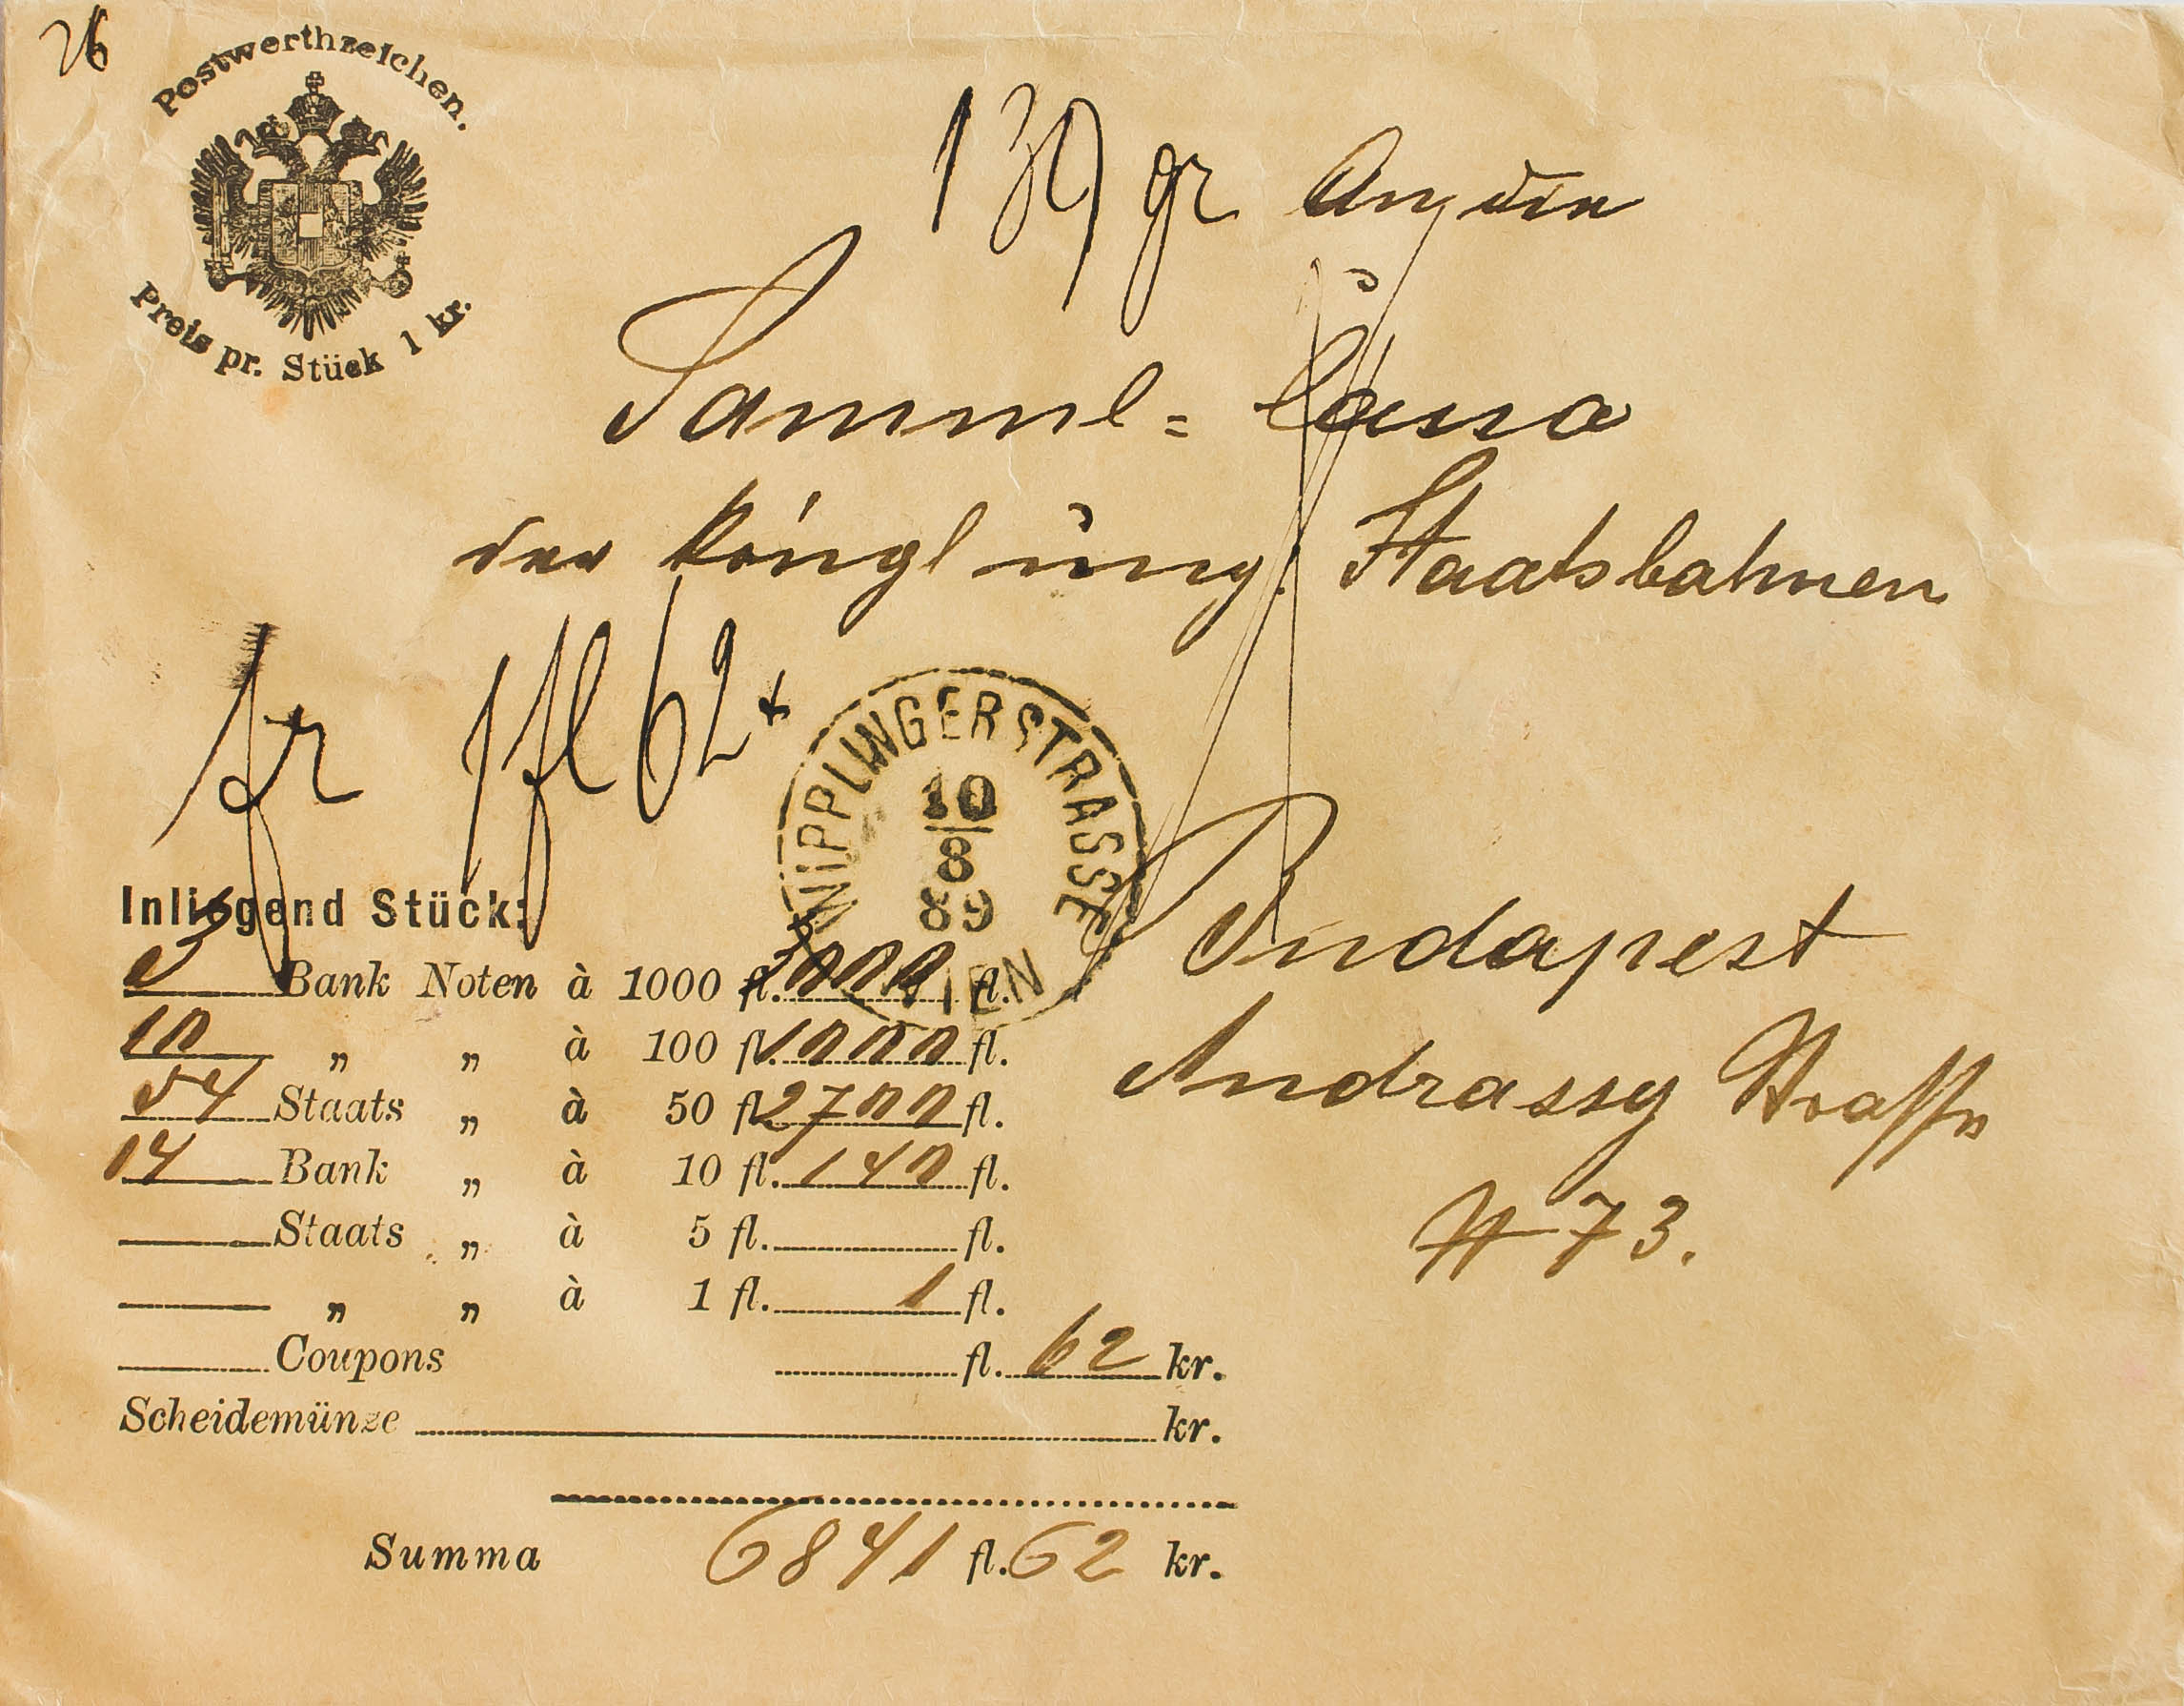 26
Postwerthzeichen.
Preis pr. Stück 1 kr.
139 gr An die
Samml= Cassa
der königl ung. Staatsbahnen
fr 1 fl 62 x
WIPPLINGERSTRASSE
10
8
89
WIEN
Budapest
Andrassy Strasse
# 73.
Inliegend Stück:
3 Bank Noten à 1000 fl. 3000 fl.
10 „ „ à 100 fl. 1000 fl.
54 Staats „ à 50 fl. 2700 fl.
14 Bank „ à 10 fl. 140 fl.
Staats „ à 5 fl. fl.
„ „ à 1 fl. 1 fl.
Coupons fl. 62 kr.
Scheidemünze kr.
Summa 6841 fl. 62 kr.